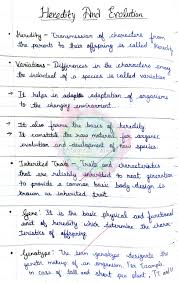 Heredity And Evolution
• Heredity - Transmission of characters from
the parents to their offspring is called Heredity
• Variations - Differences in the characters among
the individual of a species is called variation
→ It helps in adaptation of organisms
to the changing environment.
→ It also forms the basis of heredity
→ It constitutes the raw material for organic
evolution and development of new species
• Inherited Traits - Traits and characteristics
that are reliably inherited to next generation
to provide a common basic body design is
known as inherited trait.
• Gene - It is the basic physical and functional
unit of heredity which determine the charac-
teristics of offspring
• Genotype - The term genotype designate the
genetic makeup of an organism. For Example,
in case of tall and short pea plant, TT and